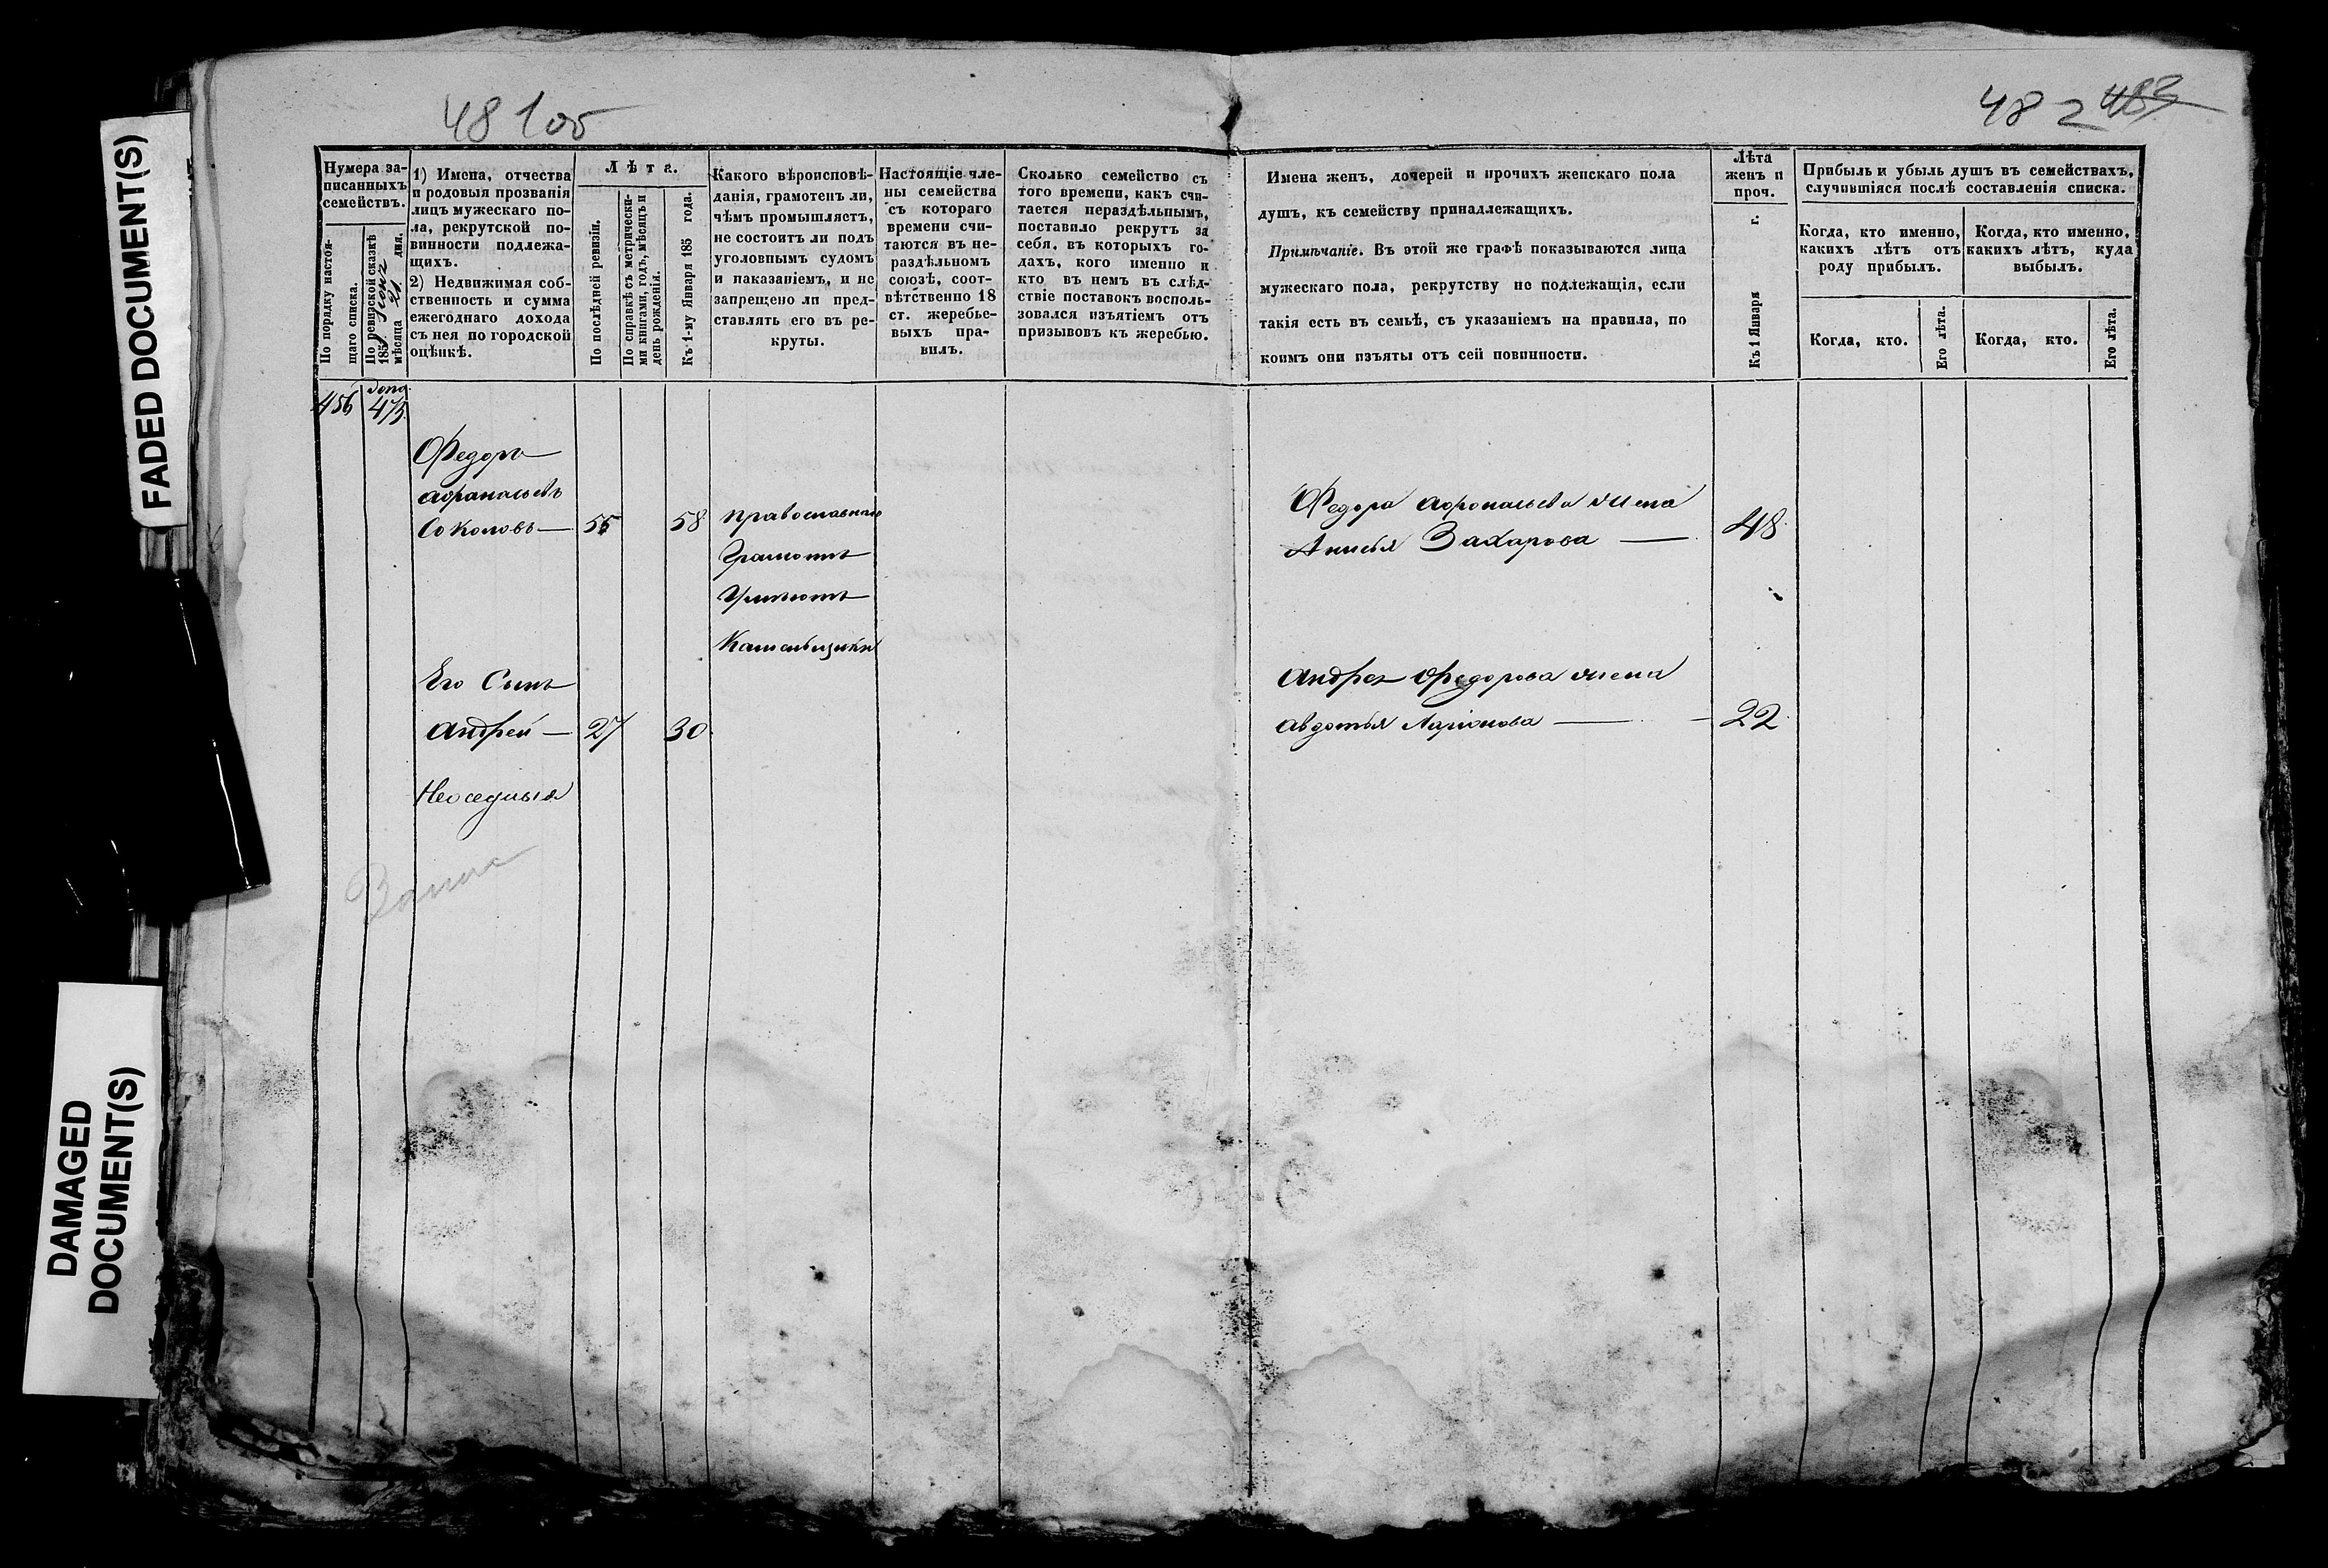 FADED DOCUMENT(S)
DAMAGED
DOCUMENT(S)
48 100
48 2 483
Нумера за-
писанныхъ
семействъ.
По порядку настоя-
щаго списка.
По ревизской сказкѣ
185 Іюня
мѣсяца 21. дня.
1) Имена, отчества
и родовыя прозванія
лицъ мужескаго по-
ла, рекрутской по-
винности подлежа-
щихъ.
2) Недвижимая соб-
ственность и сумма
ежегоднаго дохода
съ нея по городской
оцѣнкѣ.
Лѣта.
По послѣдней ревизіи.
По справкѣ съ метрически-
ми книгами, годъ, мѣсяцъ и
день рожденія.
Къ 1-му Января 185 года.
Какого вѣроисповѣ-
данія, грамотенъ ли,
чѣмъ промышляетъ,
не состоитъ ли подъ
уголовнымъ судомъ
и наказаніемъ, и не
запрещено ли пред-
ставлять его въ ре-
круты.
Настоящіе чле-
ны семейства
съ котораго
времени счи-
таются въ не-
раздѣльномъ
союзѣ, соот-
вѣтственно 18
ст. жеребье-
выхъ пра-
вилъ.
Сколько семейство съ
того времени, какъ счи-
тается нераздѣльнымъ,
поставило рекрутъ за
себя, въ которыхъ го-
дахъ, кого именно и
кто въ немъ въ слѣд-
ствіе поставокъ восполь-
зовался изъятіемъ отъ
призывовъ къ жеребью.
Имена женъ, дочерей и прочихъ женскаго пола
душъ, къ семейству принадлежащихъ.
Примѣчаніе. Въ этой же графѣ показываются лица
мужескаго пола, рекрутству не подлежащія, если
такія есть въ семьѣ, съ указаніемъ на правила, по
коимъ они изъяты отъ сей повинности.
Лѣта
женъ и
проч.
Къ 1 Января г.
Прибыль и убыль душъ въ семействахъ,
случившіяся послѣ составленія списка.
Когда, кто именно,
какихъ лѣтъ отъ
роду прибылъ.
Когда, кто именно,
какихъ лѣтъ, куда
выбылъ.
Когда, кто.
Его лѣта.
Когда, кто.
Его лѣта.
456 допо. 473
Федоръ
Афанасьевъ
Соколовъ — 55 58 православнаго
Грамотѣ
Умѣютъ
Каменьщики
Федора Афонасьева жена
Анисья Захарова — 48
Его Сынъ
Андрей — 27 30
Неоседлыя
Андрея Федорова жена
Авдотья Ларіонова — 22